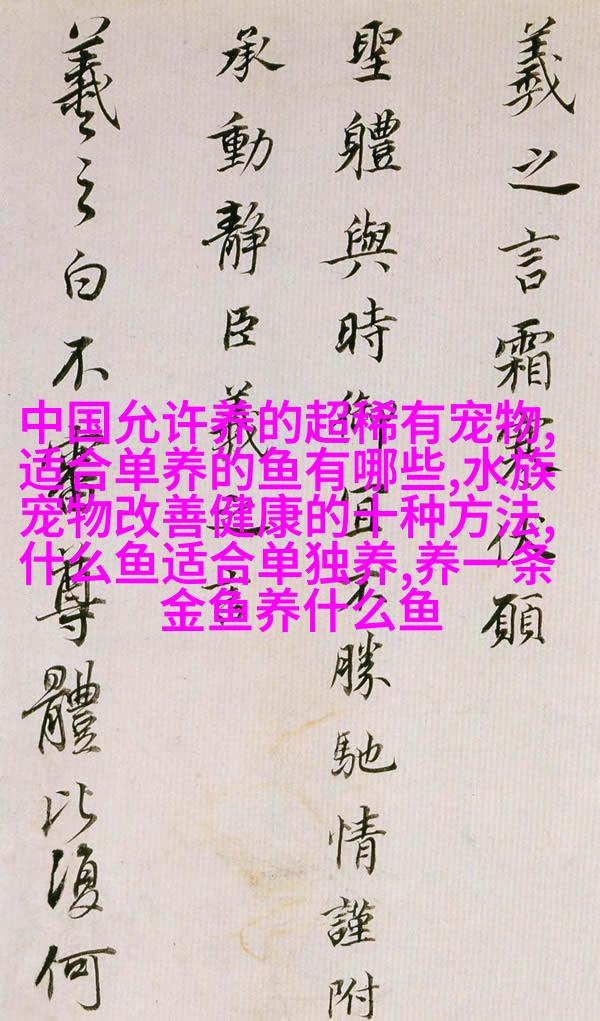 羲之言霜寒伏願
聖體與時御宜不勝馳情謹附
承動靜臣羲之言
羲之白不審尊體比復何
中国允许养的超稀有宠物,
适合单养的鱼有哪些,水族
宠物改善健康的十种方法,
什么鱼适合单独养,养一条
金鱼养什么鱼